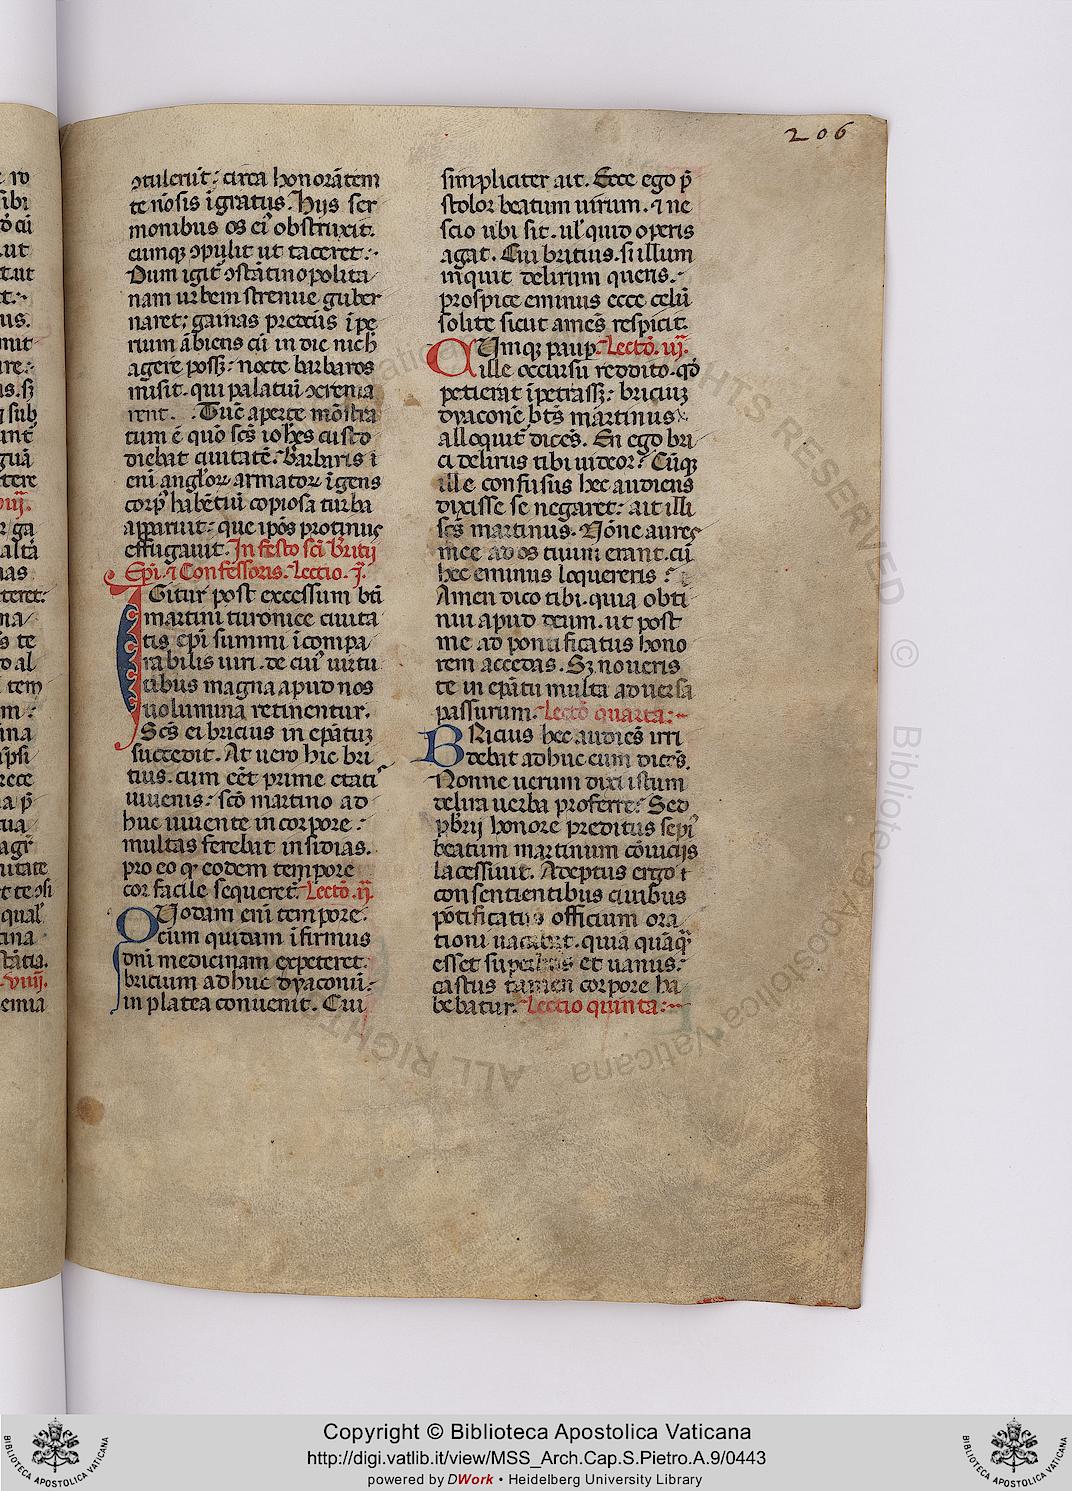 206
ɔtulerūt: circa honorātem
te nōsis īgratus. Hiis ser
monibus os eiꝰ obstruxit.
eumqꝫ ɔpulit ut taceret:
Dum igit̉ ɔstātinopolita
nam urbem strenue guber
naret; gainas predctīs ī pe
rium ābiens cū in die nich̄
agere possꝫ: nocte barbaros
misit. qui palatiū ɔcrema
rent. Tūc aperte mōstra
tum ē quō scs̄ ioh̄es custo
diebat ciuitatē. Barbaris i
eni anglorꝝ armatorꝝ īgens
corpꝰ habētiū copiosa turba
apparuit: que ipōs protinus
effugauit. In festo sci Britii
Epi. ⁊ Confessoris. Lectio. j̄.
IGitur post excessum bt̄i
martini turonice ciuita
tis epi summi īcompa
rabilis uiri. de cuiꝰ uirtu
tibus magna apud nos
uolumina retinentur.
Scs̄ ei bricius in epātuꝫ
succedit. At uero hic bri
tius. cum eēt prime etati
iuuenis: scō martino ad
huc uiuente in corpore:
multas ferebat insidias.
pro eo qꝫ eodem tempore
cor facile sequeret̉. Lectō. ij̄.
QUodam eni tempore:
cum quidam īfirmus
dni medicinam expeteret.
bricium adhuc dyaconū:
in platea conuenit. Cui
simpliciter ait. Ecce ego p̄
stolor beatum uirum. ⁊ ne
scio ubi sit. ul̉ quid operis
agat. Cui britius. si illum
inquit delirum queris.
prospice eminus ecce celū
solite sicut amēs respicit.
CUmqꝫ paup̄. Lectō. iij̄.
ille occursu reddito. qđ
petierat īpetrassꝫ: briciuꝫ
dyaconē bts̄ martinus
alloquit̉ dicēs. En ego bri
ci delirus tibi uideor? Cūqꝫ
ille confusus hec audiens
dixisse se negaret: ait illi
scs̄ martinus. Nōne aures
mee ad os tuum erant. cū
hec eminus loquereris?
Amen dico tibi. quia obti
nui apud deum. ut post
me ad pontificatus hono
rem accedas. Sꝫ noueris
te in epātu multa aduersa
passurum. Lectō quarta:
BRicius hec audiēs irri
debat adhuc eum dicēs.
Nonne uerum dixi istum
delira uerba proferre? Sed
pb̄rij honore preditus sepiꝰ
beatum martinum cōuiciis
lacessiuit. Adeptus ergo ⁊
consentientibus ciuibus
pōtificatus officium ora
tioni uacabat. quia quāqꝫ
esset superbus et uanus:
castus tamen corpore ha
bebatur. Lectio quinta:
Copyright © Biblioteca Apostolica Vaticana
http://digi.vatlib.it/view/MSS_Arch.Cap.S.Pietro.A.9/0443
powered by DWork • Heidelberg University Library